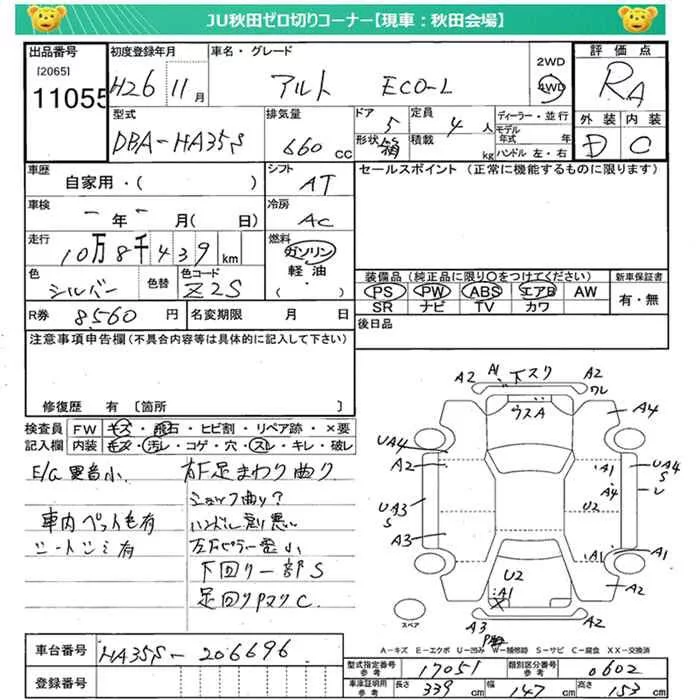 JU秋田ゼロ切りコーナー【現車：秋田会場】
出品番号 初度登録年月 車名・グレード 2WD 4WD 評価点
[2065]
11055 H26 11月 アルト ECO-L RA
型式 排気量 ドア 定員 ディーラー・並行 外装 内装
DBA-HA35S 660cc 5 4人 モデル年式 年 D C
形状 箱 積載 kg ハンドル 左・右
車歴 シフト セールスポイント (正常に機能するものに限ります)
自家用・( ) AT
車検 冷房
-年-月( 日) AC
走行 燃料
10万8千439km ガソリン
軽油・( )
色 色替 色コード 装備品(純正品に限り○をつけてください) 新車保証書
シルバー Z2S PS PW ABS エアB AW 有・無
SR ナビ TV カワ
R券 8,560円 名変期限 月 日 後日品
注意事項申告欄(不具合内容等は具体的に記入して下さい)
修復歴 有 [箇所
検査員記入欄 FW キズ・飛石・ヒビ割・リペア跡・×要
内装 キズ・汚レ・コゲ・穴・スレ・キレ・破レ
E/G異音小 右F足まわり曲り
車内ペット毛有
シートシミ有
ハンドル戻り悪い
下回り一部S
足回りPマリC.
A1 下スリ A2
A2 ワレ
ウスA
A4
UA4
A2
A1
A4
UA4
S
レ
UA3
S
U2
A3
A1
A1
U2
A1
X
A2
A3
A2
スペア
A-キズ E-エクボ U-凹み W-補修跡 S-サビ C-腐食 XX-交換済
車台番号 HA35S-206696
登録番号
型式指定番号 参考 17051 類別区分番号 参考 0602
車庫証明用 参考 長さ 339cm 幅 147cm 高さ 153cm